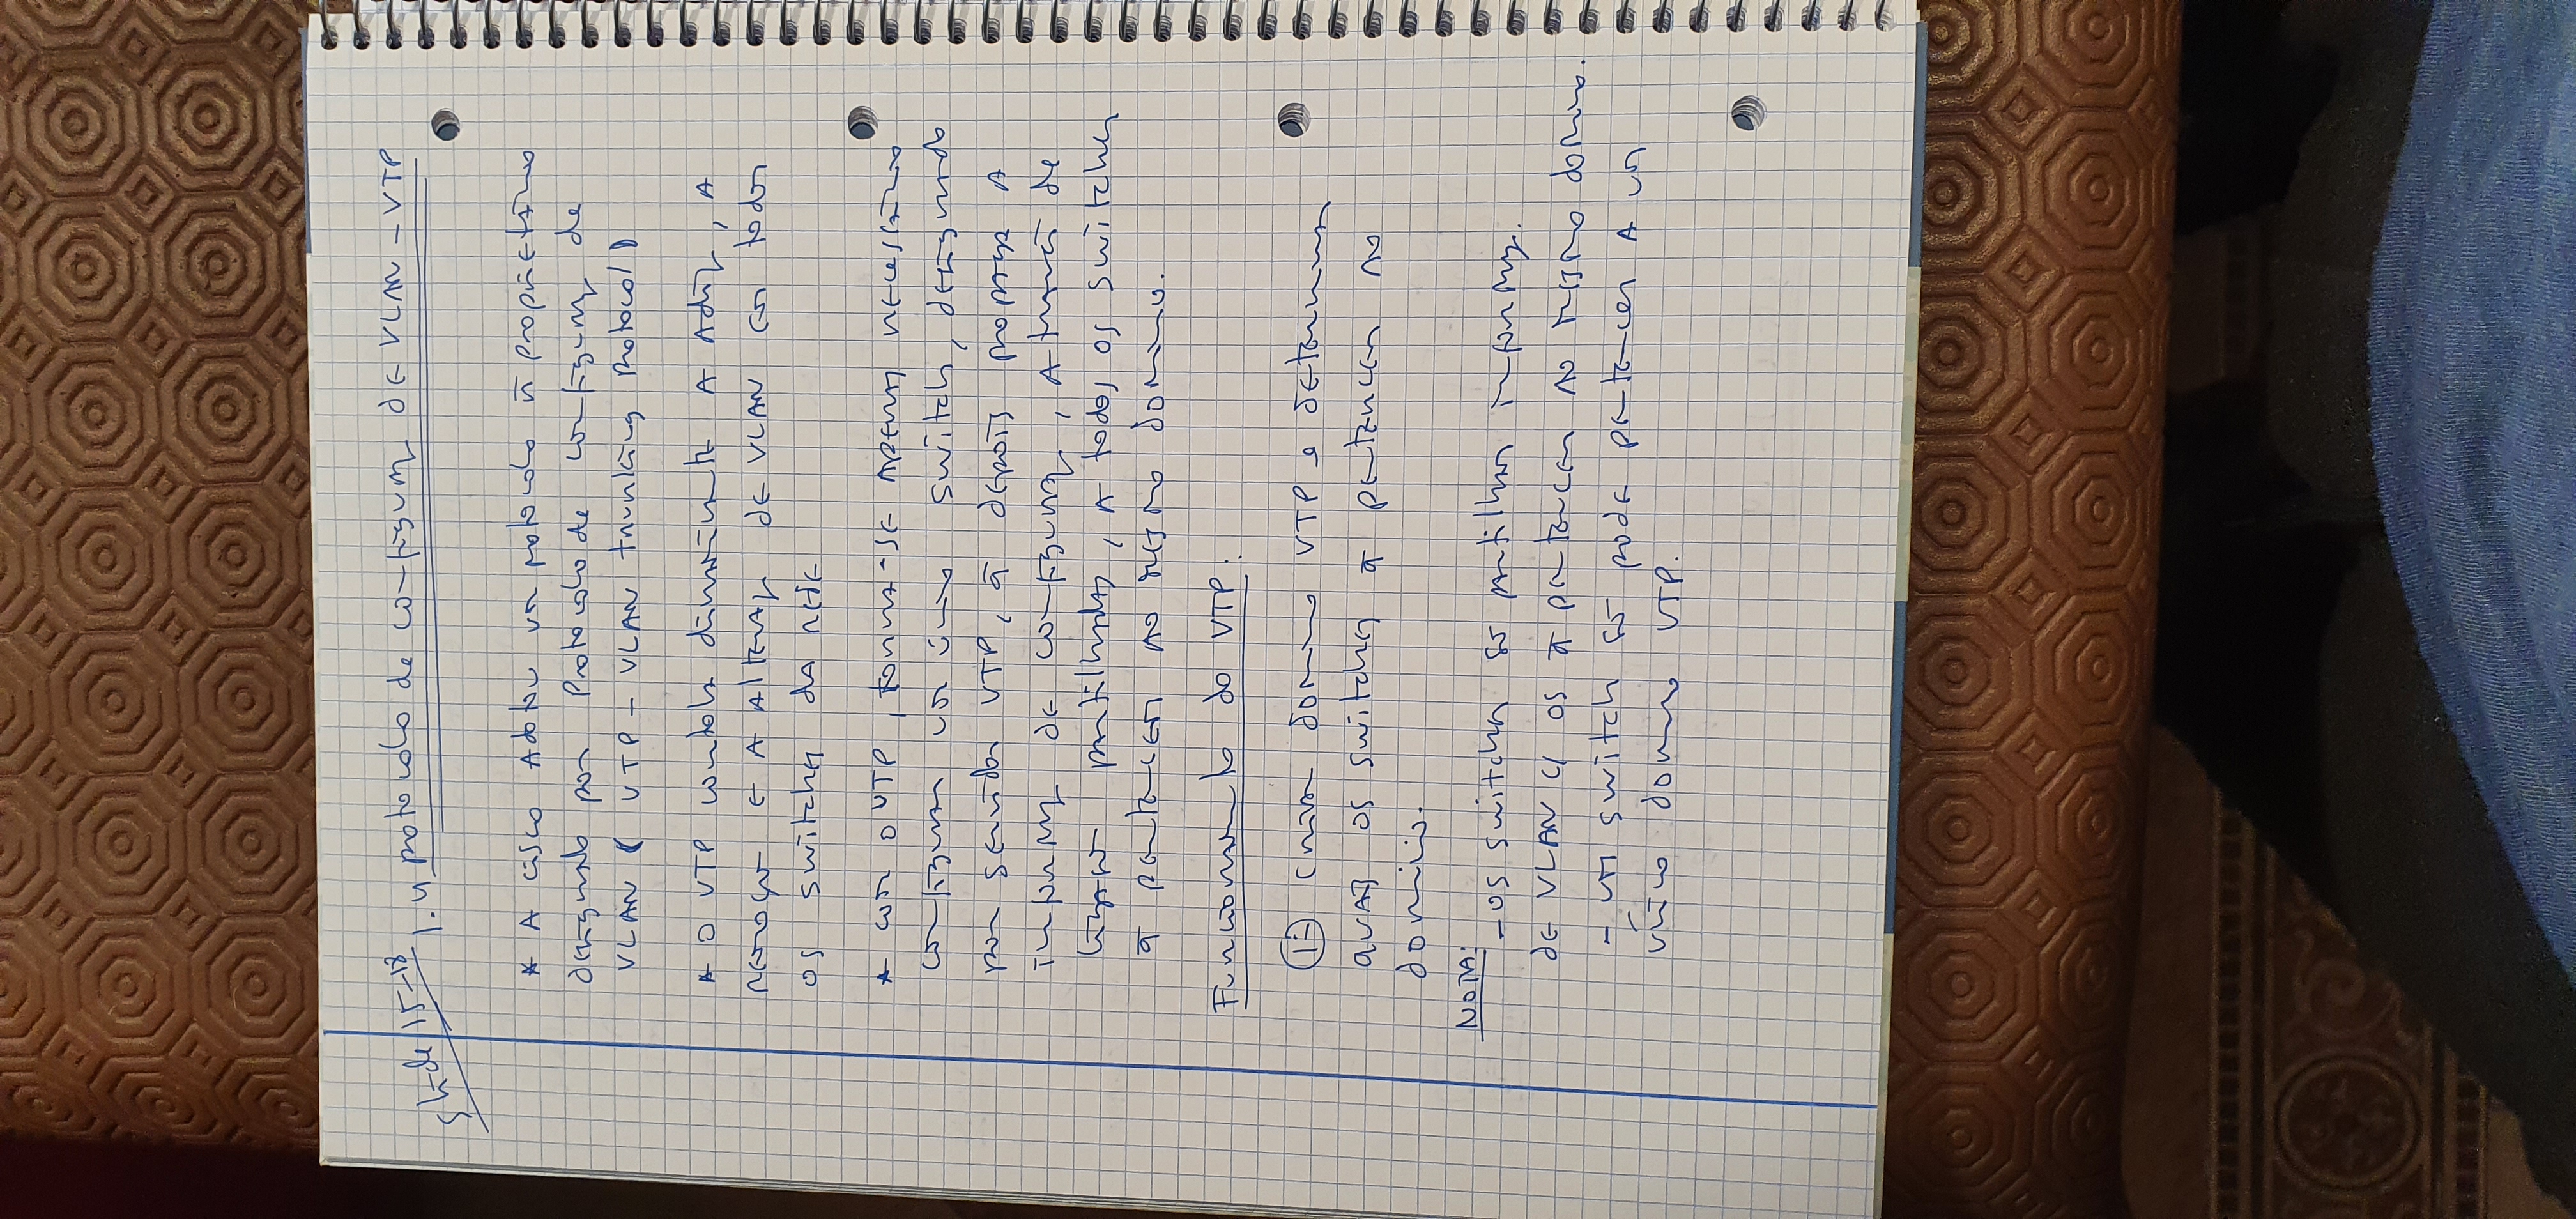 Slide 15-18
1.4 protocolo de configuraç de VLAN - VTP
* A cisco Adotou um protocolo ñ proprietário
designado por Protocolo de configuraç de
VLAN ( VTP - VLAN trunking protocol)
* O VTP controla A Adiç, A
remoção E A Alteraç de VLAN em todos
os switches da rede
* com o VTP, torna-se Apenas necessário
configurar um único switch, designado
por servidor VTP, q depois propaga A
informaç de configuraç, Através de
ligações partilhadas, A todos os switches
q pertencem Ao mesmo domínio.
Funcionamento do VTP:
1º criar domínio VTP e determinar
quais os switches q pertencem Ao
domínio.
NOTA:
- os switches só partilham informaç.
de VLAN c/ os q pertencem Ao mesmo domínio.
- um switch só pode pertencer A um
único domínio VTP.